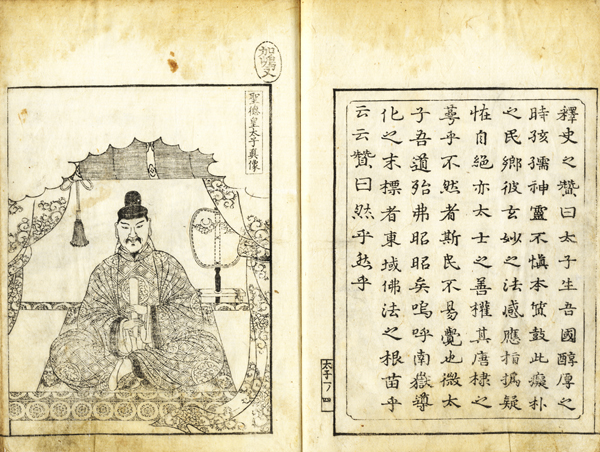 釋史之贊曰太子生吾國醇厚之
時孩孺神靈不慎本鼓此癡朴
之民鄉彼玄妙之法感應指撝疑
恠自絕亦太士之善權其唐棣之
蕚乎不然者斯民不易覺也微太
子吾道殆弗昭昭矣嗚呼南嶽導
化之末標者東域佛法之根苗乎
云云贊曰然乎然乎
太子一ノ四
聖德皇太子眞像